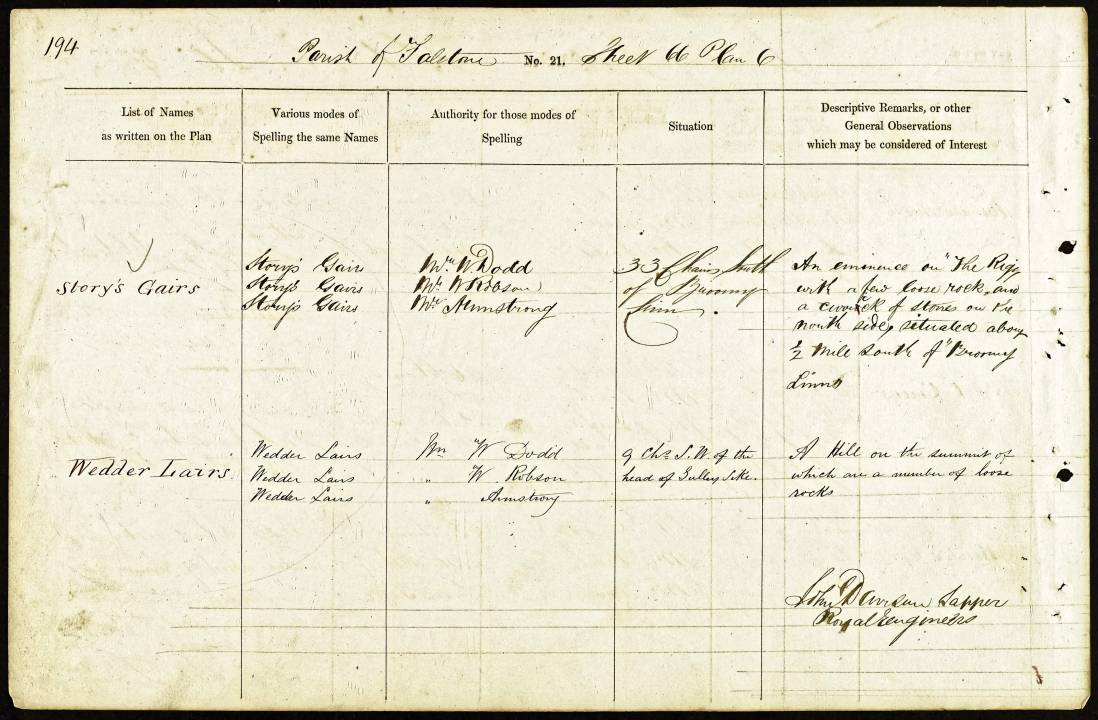 194
Parish of Falstone No. 21. Sheet 66 Plan 6
List of Names
as written on the Plan
Various modes of
Spelling the same Names
Authority for those modes of
Spelling
Situation
Descriptive Remarks, or other
General Observations
which may be considered of Interest
Story's Gairs
Story's Gairs
Story's Gairs
Story's Gairs
Mr. W Dodd
Mr. W Robson
Mr. Armstrong
33 Chains South
of Broomy
Linn.
An eminence on "The Rigg
with a few loose rocks and
a of stones on the
north side, situated about
1/2 mile South of "Broomy
Linn"
Wedder Lairs
Wedder Lairs
Wedder Lairs
Wedder Lairs
Mr. W Dodd
" W Robson
" Armstrong
9 Chs. S.W. of the
head of Gulley Sike.
A Hill on the summit of
which are a number of loose
rocks
John Davison Sapper
Royal Engineers